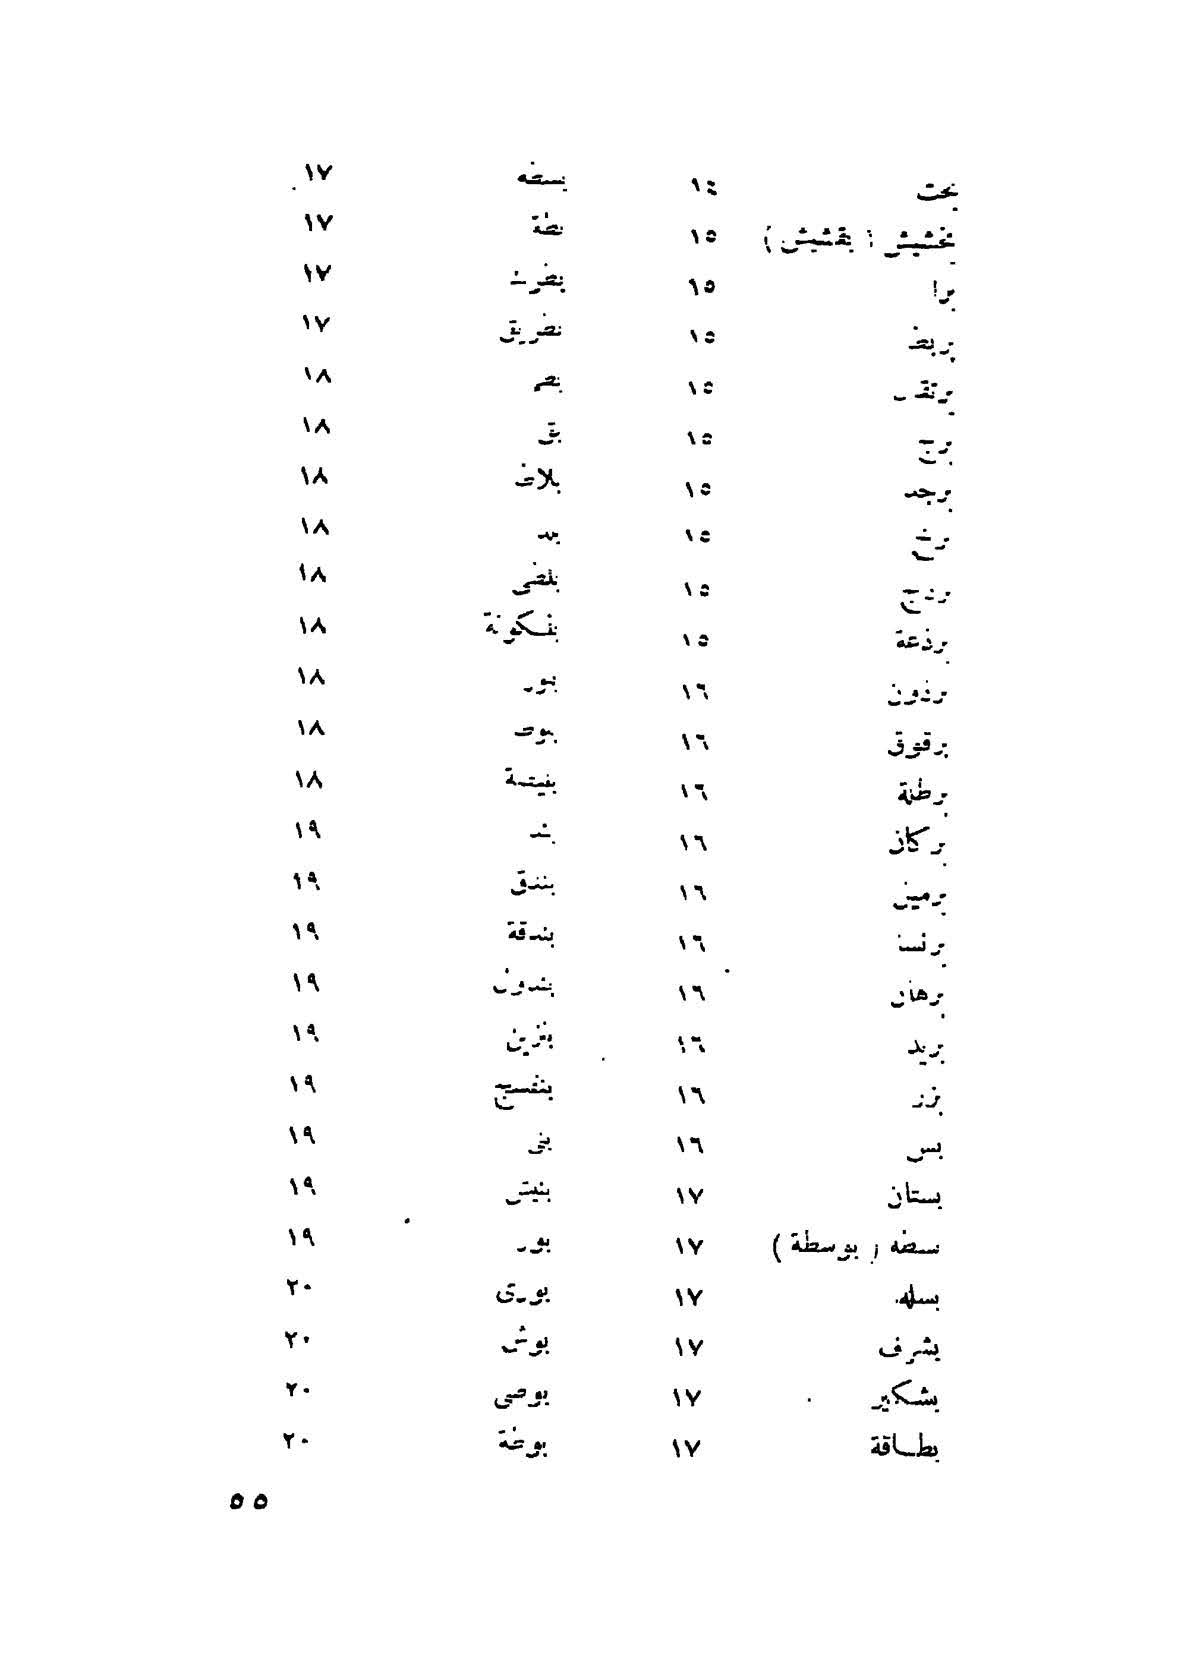 بخت ١٤
بخشيش ( بقشيش ) ١٥
برا ١٥
بربط ١٥
برتقـ ١٥
برج ١٥
برجد ١٥
برخ ١٥
١٥
برذعة ١٥
برذون ١٦
برقوق ١٦
برطلة ١٦
بركان ١٦
١٦
برنسا ١٦
برهان ١٦
بريد ١٦
١٦
بس ١٦
بستان ١٧
بسطه ( بوسطة ) ١٧
بسله ١٧
بشرف ١٧
بشكير ١٧
بطاقة ١٧
١٧
بطة ١٧
١٧
بطريق ١٧
١٨
بق ١٨
بلاط ١٨
١٨
بلطى ١٨
بلكونة ١٨
١٨
بلوط ١٨
١٨
بند ١٩
بندق ١٩
بندقة ١٩
بندول ١٩
بنزين ١٩
بنفسج ١٩
بنى ١٩
بنيش ١٩
بور ١٩
بورى ٢٠
بوش ٢٠
بوصى ٢٠
بوظة ٢٠
٥٥